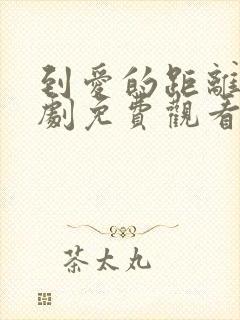 到愛的距離
劇免費觀看
茶太丸